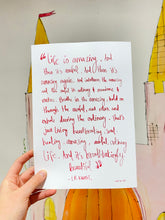 "Life is amazing. And
then it's awful. And then it's
amazing again. And in between the amazing
and the awful it's ordinary & mundane &
routine. Breathe in the amazing, hold on
through the awful, and relax and
exhale during the ordinary. That's
just living heartbreaking, soul-
healing, amazing, awful, ordinary
life. And it's breathtakingly
beautiful."